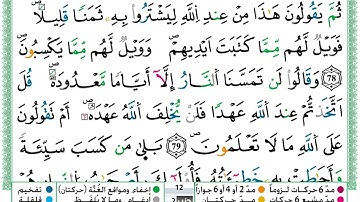 ثُمَّ يَقُولُونَ هَٰذَا مِنْ عِندِ اللَّهِ لِيَشْتَرُواْ بِهِۦ ثَمَنًا قَلِيلًا
فَوَيْلٌ لَّهُم مِّمَّا كَتَبَتَ اَيْدِيهِمْ وَوَيْلٌ لَّهُم مِّمَّا يَكْسِبُونَ
78 وَقَالُواْ لَن تَمَسَّنَا النَّارُ إِلَّآ أَيَّامًا مَّعْدُودَةً قُلَ
اَتَّخَذتُّمْ عِندَ اللَّهِ عَهْدًا فَلَنْ يُّخْلِفَ اللَّهُ عَهْدَهُۥٓ أَمْ تَقُولُونَ
عَلَى اللَّهِ مَا لَا تَعْلَمُونَ 79 بَلَىٰ مَن كَسَبَ سَيِّئَةً
وَأَحَاطَتْ بِهِۦ
مدّ 6 حركات لزوماً مدّ 2 أو 4 أو 6 جوازاً 12 إخفاء ومواقع الغنّة (حركتان) تفخيم
مدّ مشبع 6 حركات مدّ حركتان إدغام وما لا يُلفظ قلقلة